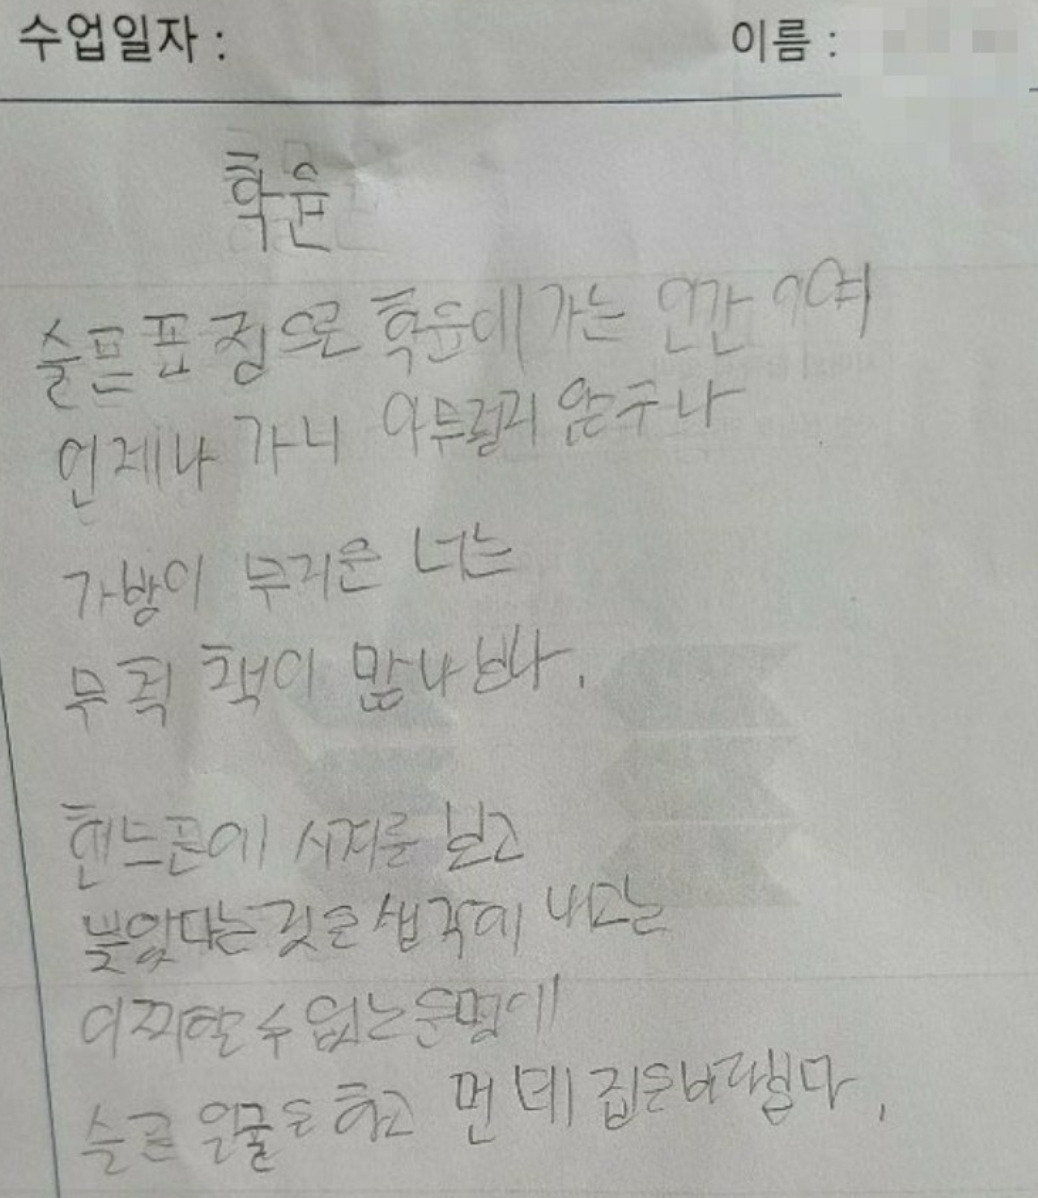 수업일자 :
이름 :
학원
슬픈 표정으로 학원에 가는 인간이여
언제나 가니 아무럴리 않구나
가방이 무거운 너는
무척 책이 많나 보다.
핸드폰에 시계를 보고
늦었다는 것을 생각에 내고는
어찌할 수 없는 운명에
슬픈 얼굴을 하고 먼 데 집을 바라본다.